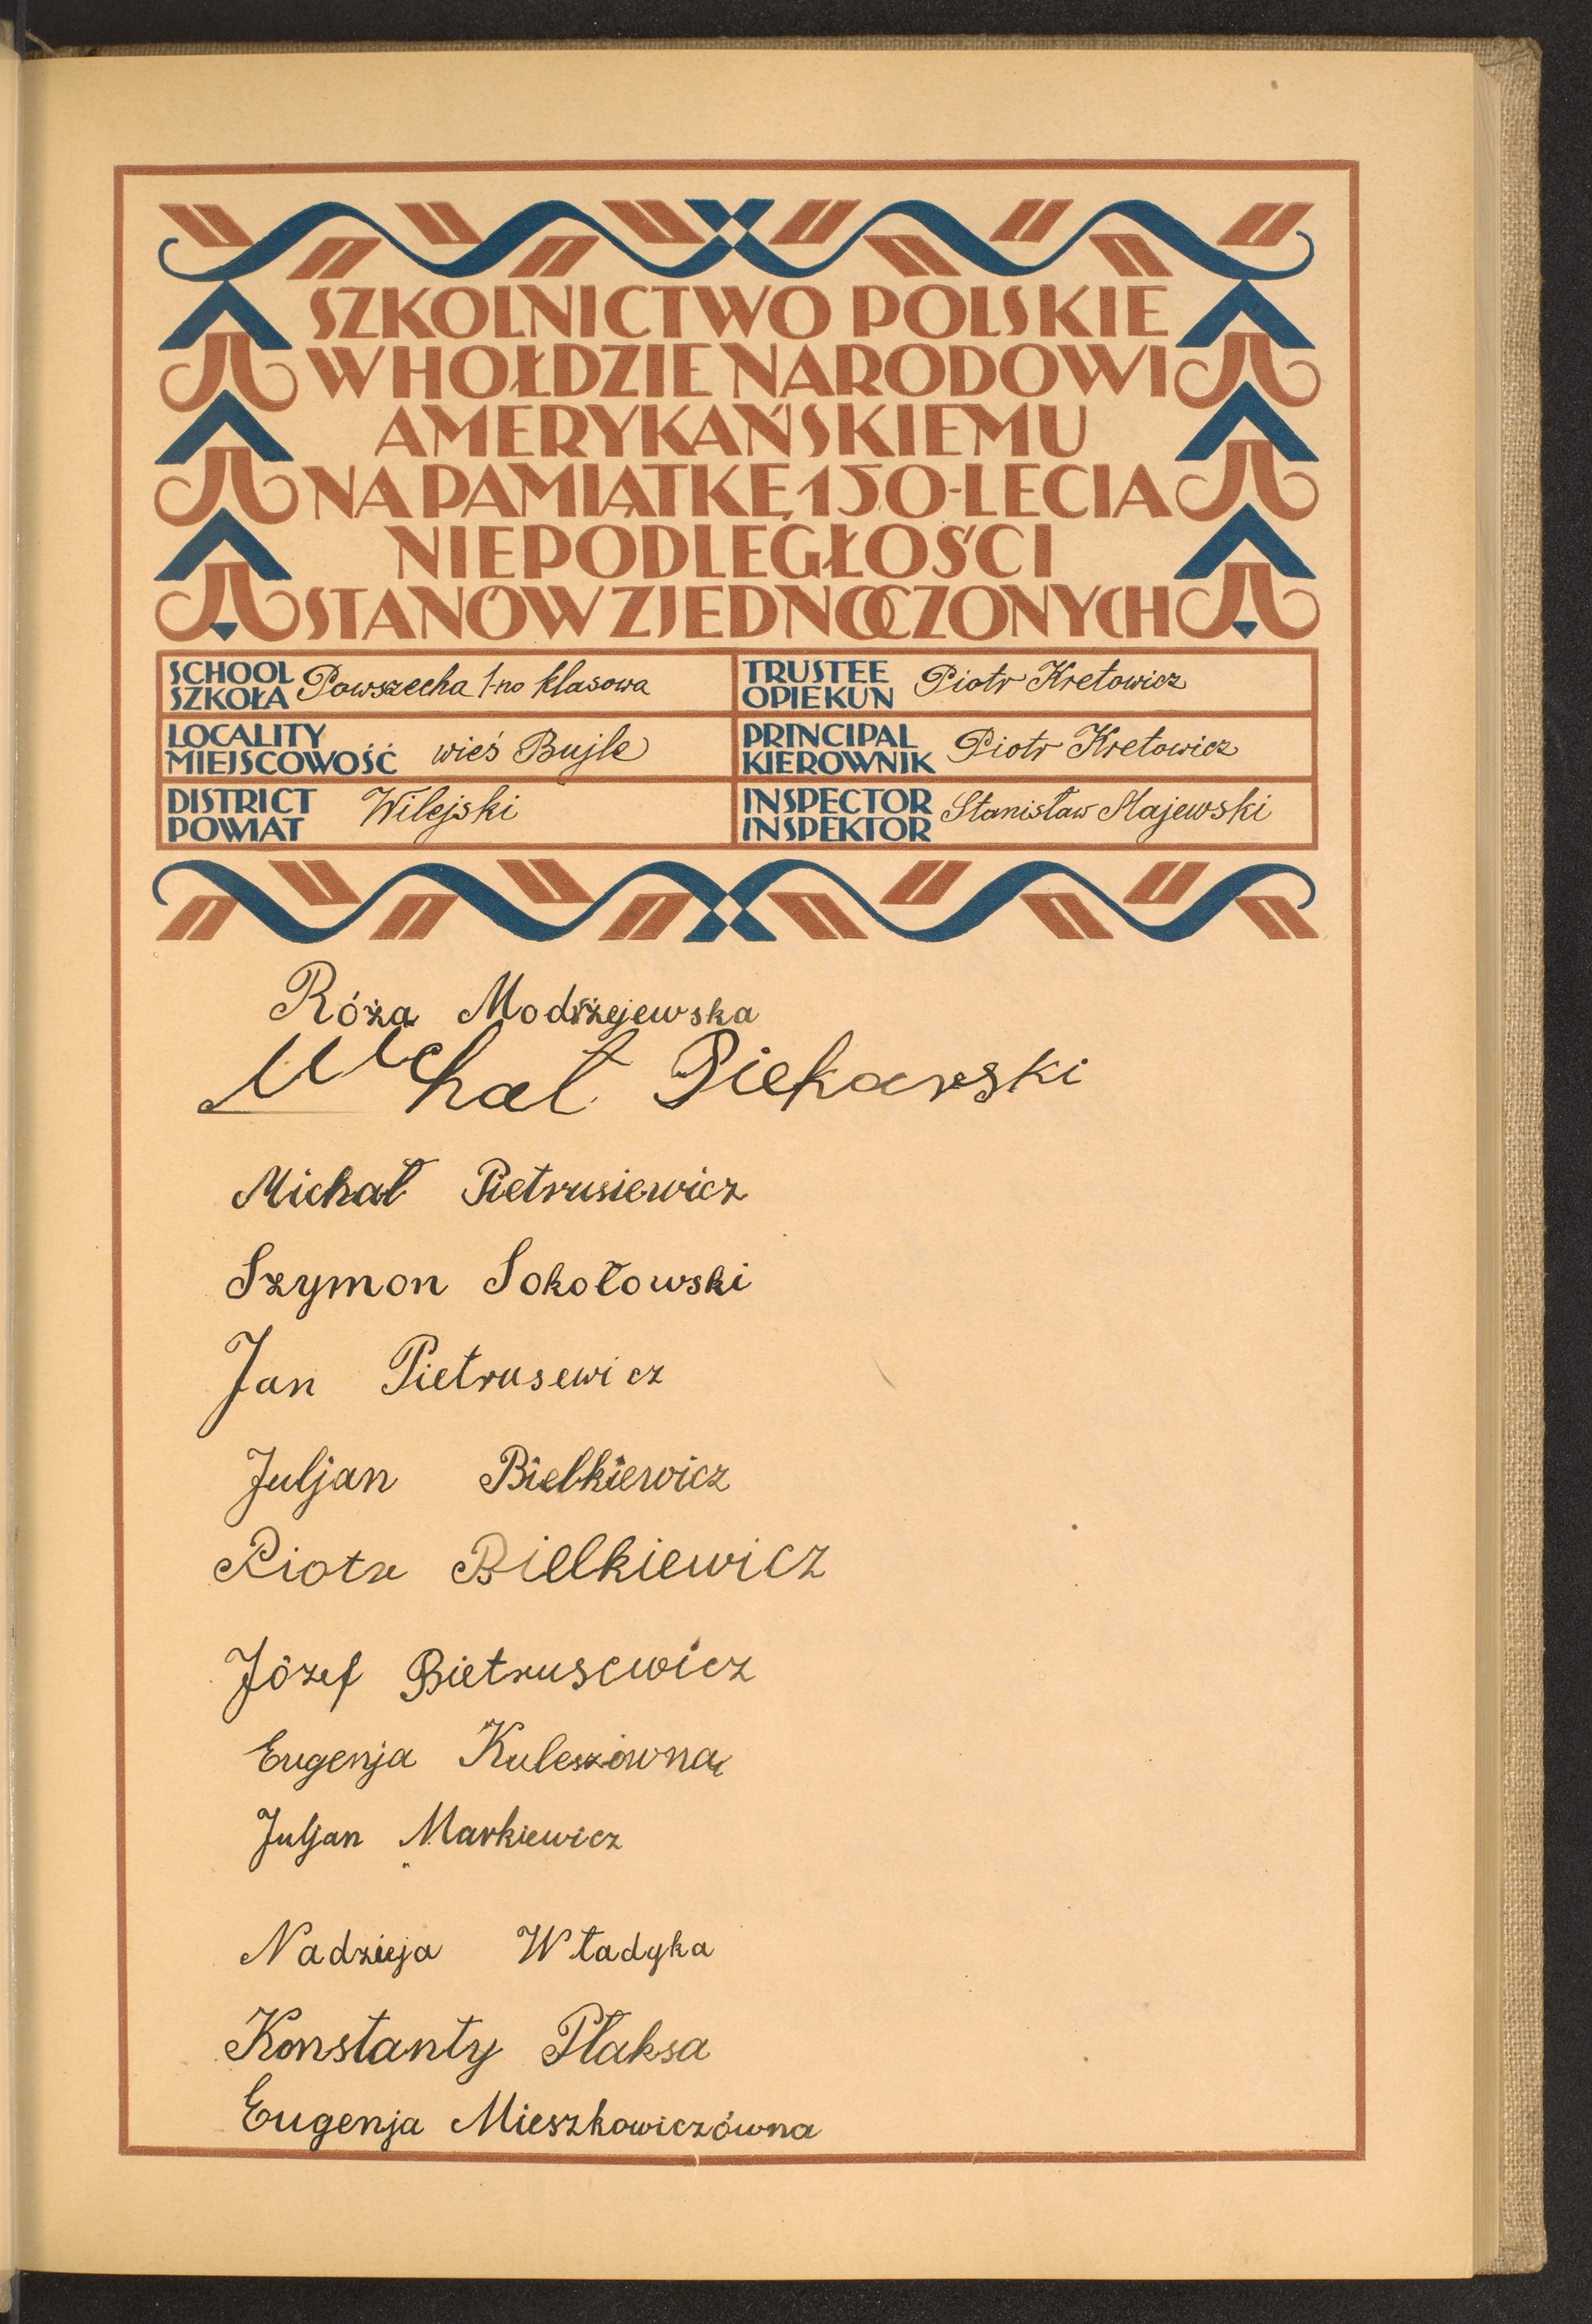 SZKOLNICTWO POLSKIE
W HOŁDZIE NARODOWI
AMERYKAŃSKIEMU
NA PAMIĄTKĘ 150-LECIA
NIEPODLEGŁOŚCI
STANÓW ZJEDNOCZONYCH
SCHOOL
SZKOŁA Powszecha 1-no klasowa
TRUSTEE
OPIEKUN Piotr Kretowicz
LOCALITY
MIEJSCOWOŚĆ wieś Bujle
PRINCIPAL
KIEROWNIK Piotr Kretowicz
DISTRICT
POWIAT Wilejski
INSPECTOR
INSPEKTOR Stanisław
Róża Modrzejewska
Michał Piekarski
Michał Pietrusiewicz
Szymon Sokołowski
Jan Pietrusewicz
Juljan Bielkiewicz
Piotr Bielkiewicz
Józef Pietrusewicz
Eugenja Kuleszówna
Juljan Markiewicz
Nadzieja Władyka
Konstanty Płaksa
Eugenja Mieszkowiczówna